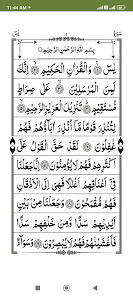 11:44 AM
بِسْمِ اللهِ الرَّحْمٰنِ الرَّحِيْمِ
يٰسٓ ۚ وَالْقُرْاٰنِ الْحَكِيْمِ ۙ اِنَّكَ
لَمِنَ الْمُرْسَلِيْنَ ۙ عَلٰى صِرَاطٍ
مُّسْتَقِيْمٍ ؕ تَنْزِيْلَ الْعَزِيْزِ الرَّحِيْمِ ۙ
لِتُنْذِرَ قَوْمًا مَّاۤ اُنْذِرَ اٰبَآؤُهُمْ فَهُمْ
غٰفِلُوْنَ لَقَدْ حَقَّ الْقَوْلُ عَلٰٓى
اَكْثَرِهِمْ فَهُمْ لَا يُؤْمِنُوْنَ اِنَّا جَعَلْنَا
فِيْۤ اَعْنَاقِهِمْ اَغْلٰلًا فَهِيَ اِلَى الْاَذْقَانِ
فَهُمْ مُّقْمَحُوْنَ وَجَعَلْنَا مِنْۢ بَيْنِ
اَيْدِيْهِمْ سَدًّا وَّمِنْ خَلْفِهِمْ سَدًّا
فَاَغْشَيْنٰهُمْ فَهُمْ لَا يُبْصِرُوْنَ وَسَوَآءٌ